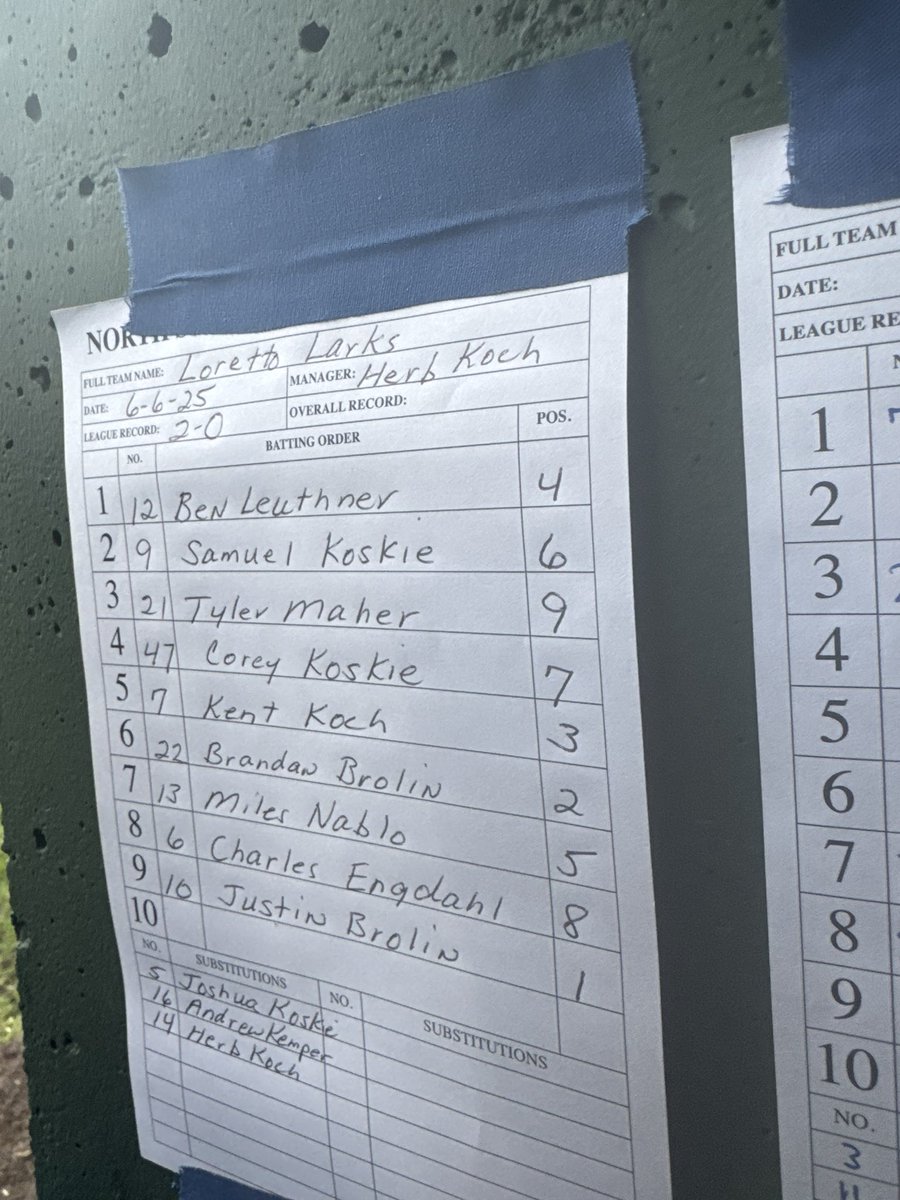 FULL TEAM NAME: Loretto Larks
MANAGER: Herb Koch
DATE: 6-6-25
OVERALL RECORD:
LEAGUE RECORD: 2-0
NO. BATTING ORDER POS.
1 12 Ben Leuthner 4
2 9 Samuel Koskie 6
3 21 Tyler Maher 9
4 47 Corey Koskie 7
5 7 Kent Koch 3
6 22 Brandan Brolin 2
7 13 Miles Nablo 5
8 6 Charles Engdahl 8
9 10 Justin Brolin 1
10
NO. SUBSTITUTIONS NO. SUBSTITUTIONS
5 Joshua Koskie
16 Andrew Kemper
14 Herb Koch
FULL TEAM
DATE:
LEAGUE
1
2
3
4
5
6
7
8
9
10
NO.
3